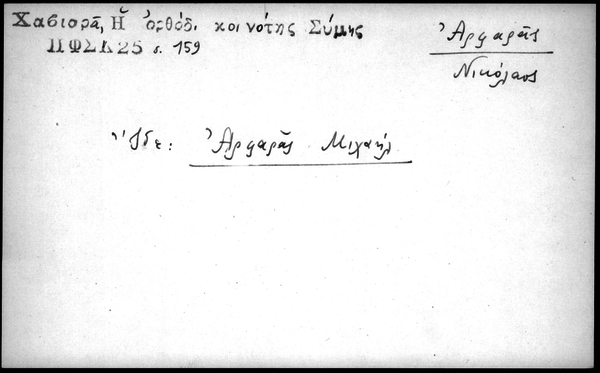 Χαβιαρᾶ, Ἡ ὀρθόδ. κοινότης Σύμης
ΠΦΣΚ25 σ. 159
Ἀργαρᾶς
Νικόλαος
Ἴδε: Ἀργαρᾶς Μιχαήλ